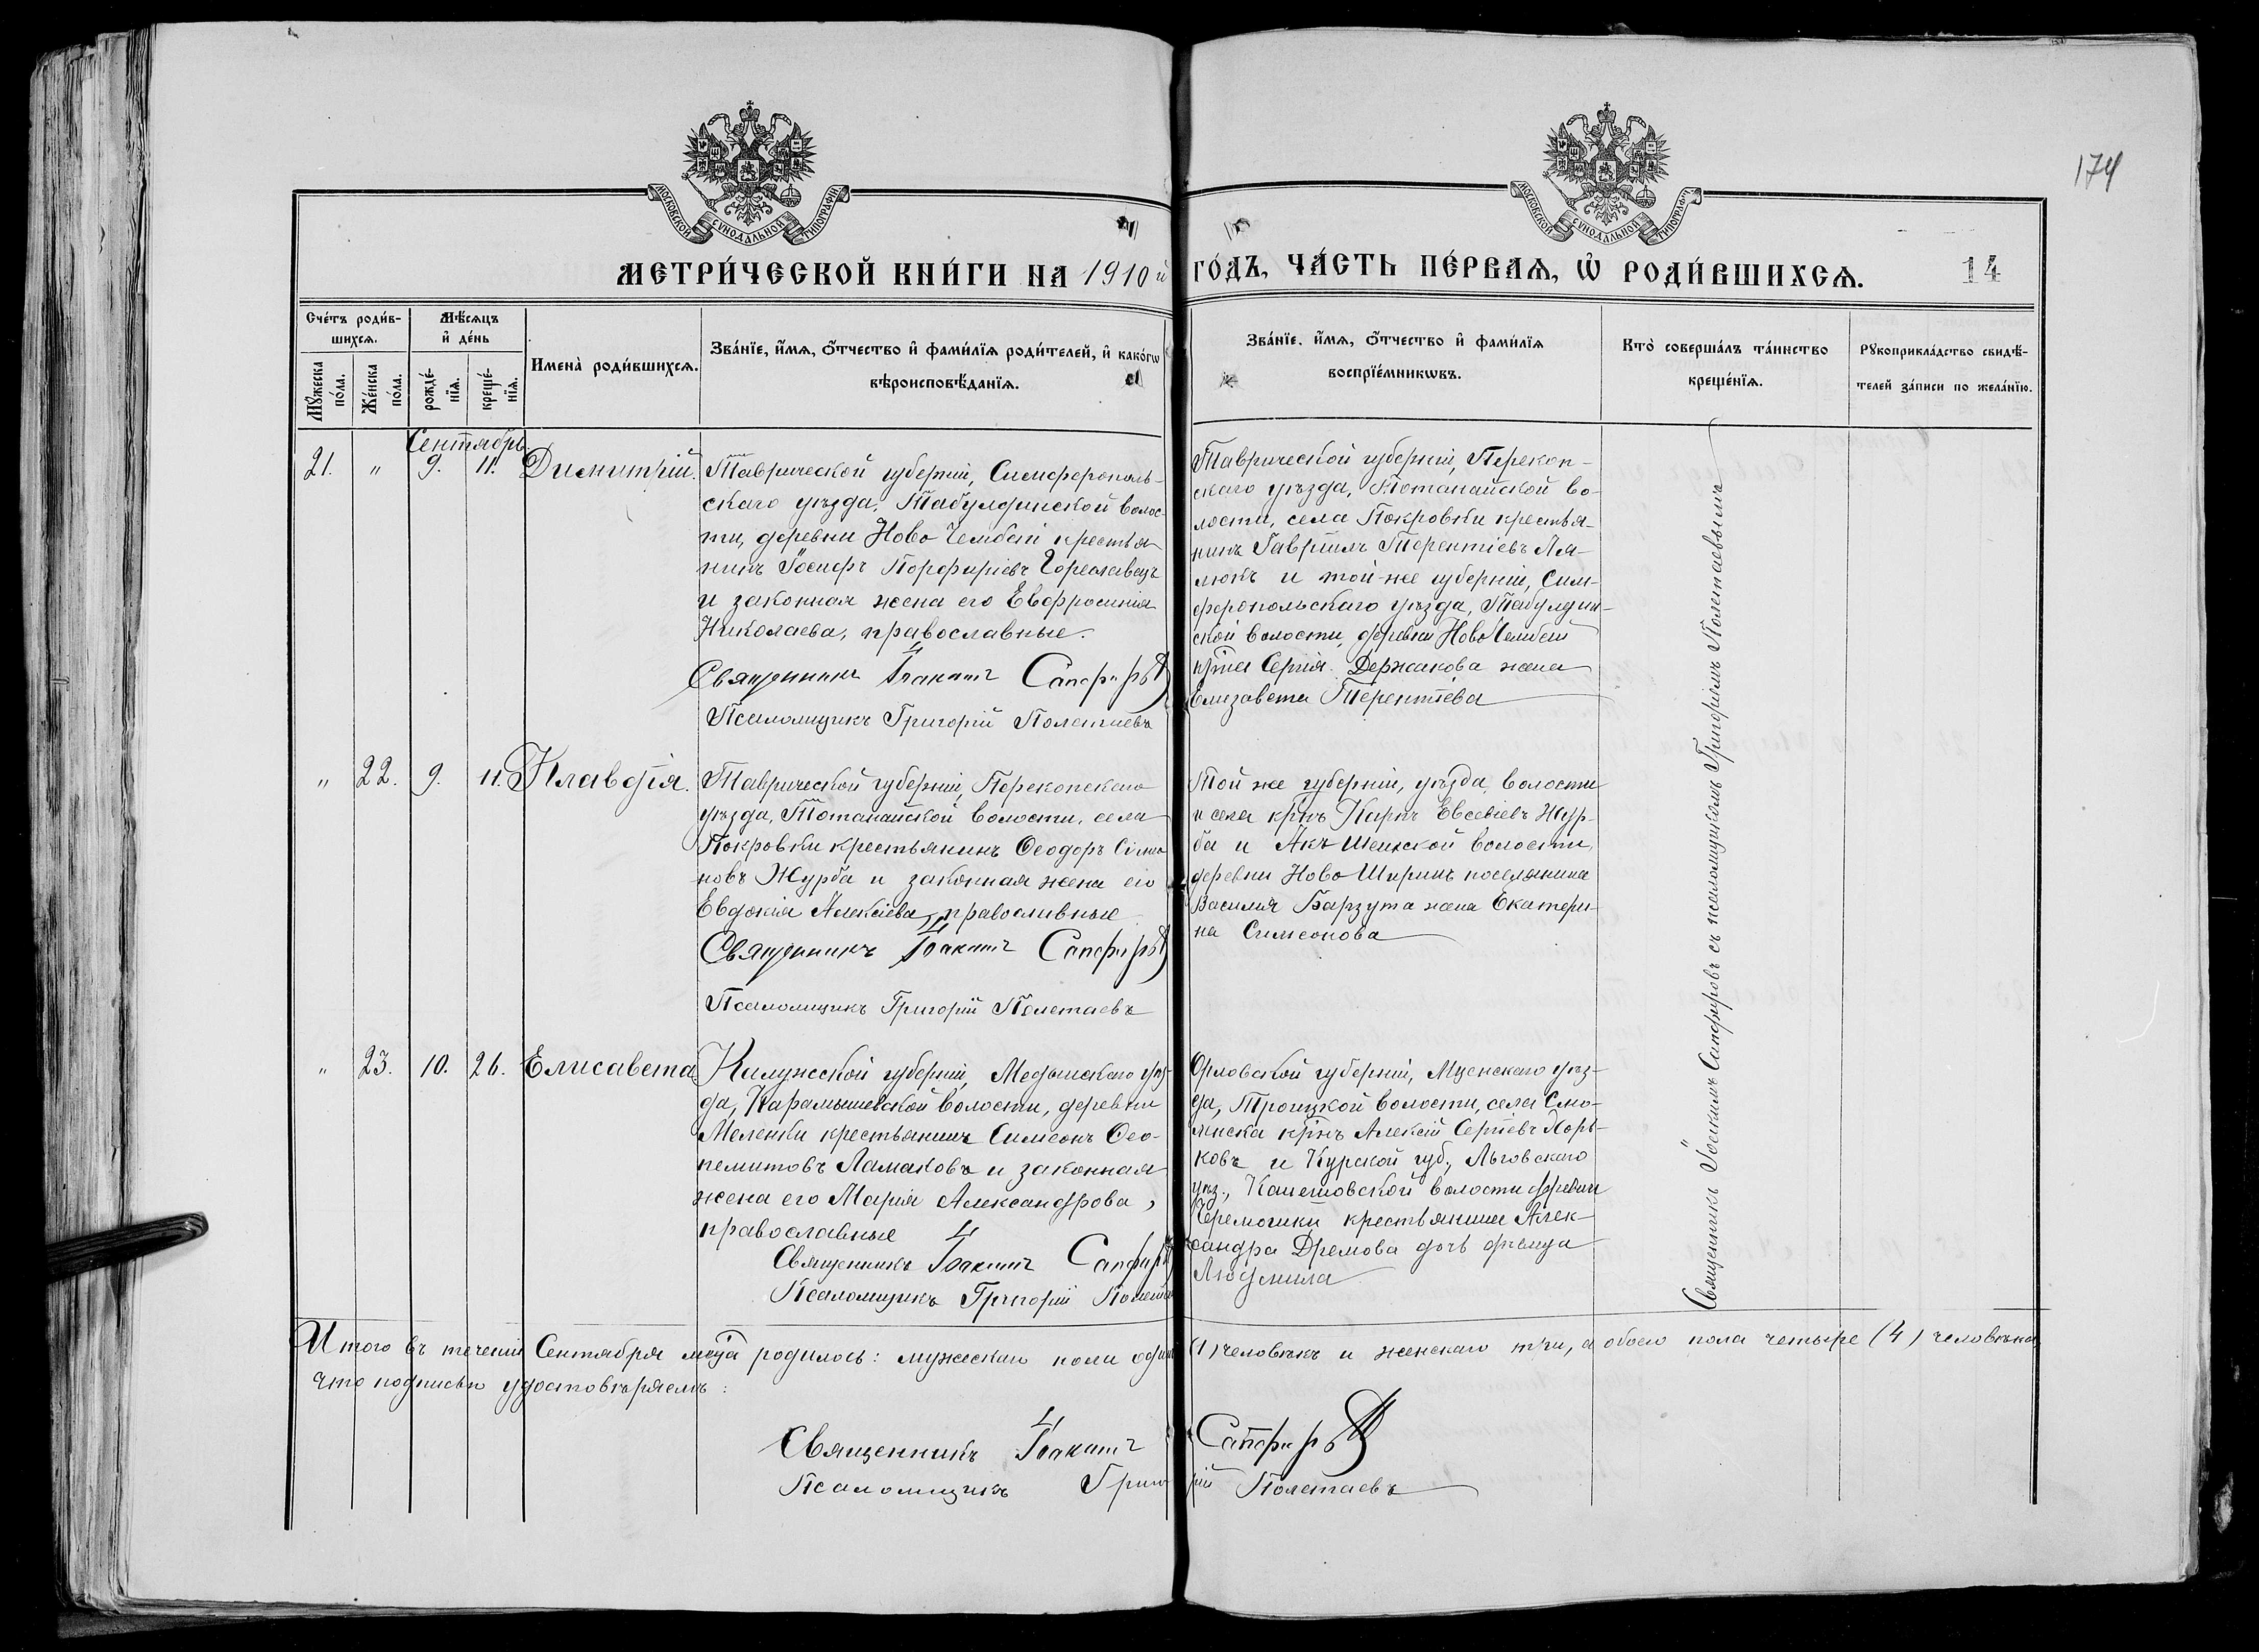 174
МОСКОВСКОЙ СѴНОДАЛЬНОЙ ТИПОГРАФІИ
МОСКОВСКОЙ СѴНОДАЛЬНОЙ ТИПОГРАФІИ
МЕТРИ́ЧЕСКОЙ КНИ́ГИ НА 1910 й ГО́ДЪ, ЧА́СТЬ ПЕ́РВАѦ, Ѡ҆ РОДИ́ВШИХСѦ. 14
Сче́тъ роди́в-
шихсѧ.
Мꙋ́жеска по́ла.
Же́нска по́ла.
Мѣ́сѧцъ
и҆ де́нь
рожде́-
нїѧ.
креще́-
нїѧ.
Имена̀ роди́вшихсѧ.
Зва́нїе, и҆́мѧ, ѻ҆́тчество и҆ фами́лїѧ роди́телей, и҆ како́гѡ
вѣроисповѣ́данїѧ.
Зва́нїе, и҆́мѧ, ѻ҆́тчество и҆ фами́лїѧ
воспрїе́мникѡвъ.
Кто̀ соверша́лъ та́инство
креще́нїѧ.
Рꙋкоприкла́дство свидѣ́-
телей за́писи по жела́нїю.
Сентябрь.
21. " 9. 11. Димитрій.
Таврической губерніи, Симферополь-
скаго уѣзда, Табулдинской волос-
ти, деревни Ново Челебій крестья-
нинъ Іосифъ Порфиріевъ
и законная жена его Евфросинія
Николаева, православные.
Священникъ Іоакимъ Сапфировъ
Псаломщикъ Григорій Полетаевъ
Таврической губерніи, Перекоп-
скаго уѣзда, Тотанайской во-
лости, села Покровки крестья-
нинъ Гавріилъ Терентіевъ Ля-
люкъ и той-же губерніи, Сим-
феропольскаго уѣзда, Табулдин-
ской волости, деревни Ново Челебій
кр-на Сергія Держакова жена
Елизавета Терентіева
" 22. 9. 11. Клавдія.
Таврической губерніи, Перекопскаго
уѣзда, Тотанайской волости, села
Покровки крестьянинъ Ѳеодоръ Симео-
новъ Журба и законная жена его
Евдокія Алексіева, православные
Священникъ Іоакимъ Сапфировъ
Псаломщикъ Григорій Полетаевъ
Той же губерніи, уѣзда, волости
и села кр-нъ Карпъ Евсевіевъ Жур-
ба и Акъ Шеихской волости,
деревни Ново Ширинъ поселянина
Василія Барзута жена Екатери-
на Симеонова
" 23. 10. 26. Елисавета
Калужской губерніи, Медынскаго уѣз-
да, Карамышевской волости, деревни
Меленки крестьянинъ Симеонъ Ѳео-
пемптовъ Ламаковъ и законная
жена его Марія Александрова,
православные
Священникъ Іоакимъ Сапфировъ
Псаломщикъ Григорій Полетаевъ
Орловской губерніи, Мценскаго уѣз-
да, Троицкой волости, села
кр-нъ Алексій Сергіевъ Хорь-
ковъ и Курской губ., Льговскаго
уѣз., волости деревни
Черемошки крестьянина Алек-
сандра Дремова дочь дѣвица
Людмила
Священникъ Іоакимъ Сапфировъ съ псаломщикомъ Григоріемъ Полетаевымъ
Итого въ теченіи Сентября м-ца родилось: мужескаго пола одинъ (1) человѣкъ и женскаго три, а обоего пола четыре (4) человѣка,
что подписью удостовѣряемъ:
Священникъ Іоакимъ Сапфировъ
Псаломщикъ Григорій Полетаевъ